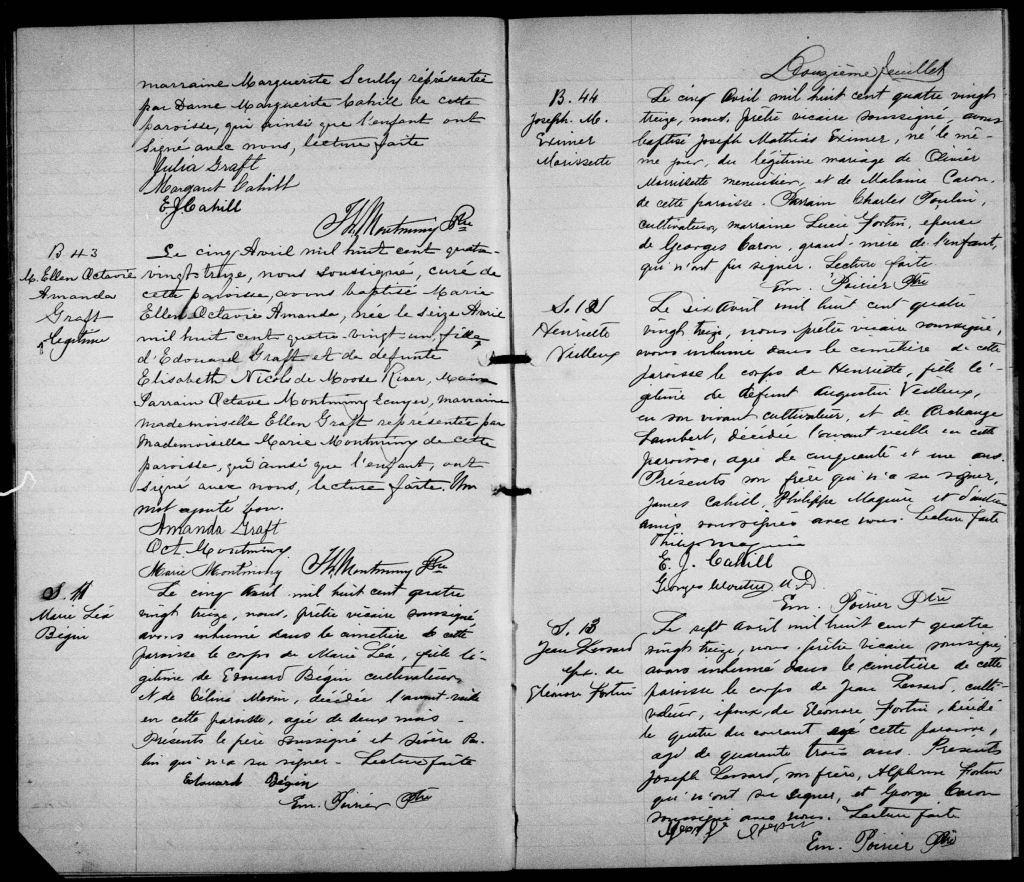 marraine Marguerite Scully représentée
par Dame Marguerite Cahill de cette
paroisse, qui ainsi que l'enfant ont
signé avec nous, lecture faite
Julia Graft
Margaret Cahill
E J Cahill
Th. Montminy Ptre
B 43
M. Ellen Octavie
Amanda
Graft
légitime
Le cinq Avril mil huit cent quatre
vingt treize, nous soussigné, curé de
cette paroisse, avons baptisé Marie
Ellen Octavie Amanda, née le seize Avril
mil huit cent quatre-vingt-un, fille
d'Edouard Graft et de defunte
Elisabeth Nicols de Moose River, Maine
Parrain Octave Montminy Ecuyer, marraine
mademoiselle Ellen Graft représentée par
Mademoiselle Marie Montminy de cette
paroisse, qui ainsi que l'enfant, ont
signé avec nous, lecture faite. Un
mot ajouté bon.
Amanda Graft
Oct. Montminy
Marie Montminy Th. Montminy Ptre
S. 11
Marie Léa
Bégin
Le cinq Avril mil huit cent quatre
vingt treize, nous, prêtre vicaire soussigné
avons inhumé dans le cimetière de cette
paroisse le corps de Marie Léa, fille lé-
gitime de Edouard Begin cultivateur,
et de Célina Morin, décédée l'avant veille
en cette paroisse, agée de deux mois.
Présents le père soussigné et
qui n'a su signer. Lecture faite
Edouard Bégin
Em. Poirier Ptre
Douzième feuillet
B. 44
Joseph. M.
Eximer
Morissette
Le cinq Avril mil huit cent quatre vingt
treize, nous, prêtre vicaire soussigné, avons
baptisé Joseph Mathias Eximer, né le mê-
me jour, du légitime mariage de Olivier
Morrissette menuisier, et de Malvina Caron,
de cette paroisse. Parrain Charles Poulin,
cultivateur, marraine Lucie Fortin, epouse
de Georges Caron, grand-mère de l'enfant,
qui n'ont pu signer. Lecture faite
Em. Poirier Ptre
S. 12
Henriette
Veilleux
Le six Avril mil huit cent quatre
vingt treize, nous prêtre vicaire soussigné,
avons inhumé dans le cimetière de cette
paroisse le corps de Henriette, fille lé-
gitime de défunt Augustin Veilleux,
en son vivant cultivateur, et de Archange
Lambert, décédée l'avant veille en cette
paroisse, agée de cinquante et un ans.
Présents son frère qui n'a su signer,
James Cahill, Philippe Maguire et d'autres
amis soussignés avec nous. Lecture faite
Philip Maguire
E. J. Cahill
Georges M D
Em. Poirier Ptre
S. 13
Jean Lessard
epx. de
Eléonore Fortin
Le sept Avril mil huit cent quatre
vingt treize, nous, prêtre vicaire soussigné,
avons inhumé dans le cimetière de cette
paroisse le corps de Jean Lessard, culti-
vateur, époux de Eléonore Fortin, décédé
le quatre du courant cette paroisse,
agé de quarante trois ans. Présents
Joseph Lessard, son frère, Alphonse Fortin
qui n'ont su signer, et George Caron
soussigné avec nous. Lecture faite
Em. Poirier Ptre